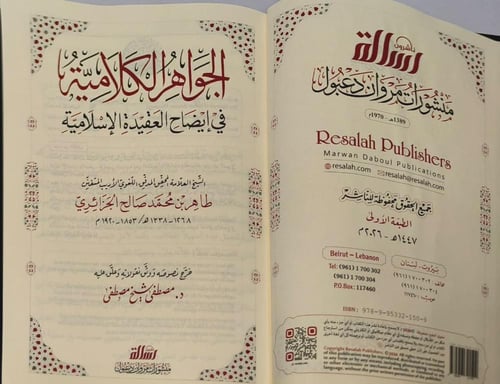 الجواهر الكلامية
في إيضاح العقيدة الإسلامية
الشيخ العلامة المحقق المدقق اللغوي الأديب المتفنن
طاهر بن محمد صالح الجزائري
١٢٦٨-١٣٣٨هـ / ١٨٥٣-١٩٢٠م
خرج نصوصه ووثق نقولاته وعلق عليه
د. مصطفى شيخ مصطفى
رسالة
منشورات مروان دعبول
رسالة
ناشرون
منشورات مروان دعبول
1389هـ - 1970م
Resalah Publishers
Marwan Daboul Publications
resalah.com
resalah@resalah.com
جميع الحقوق محفوظة للناشر
الطبعة الأولى
١٤٤٧هـ - ٢٠٢٦م
Beirut – Lebanon
Tel: (961) 1 700 302
(961) 1 700 304
P.O.Box: 117460
بيروت - لبنان
ISBN: 978-9-95332-150-9
Copyright Resalah Publishers